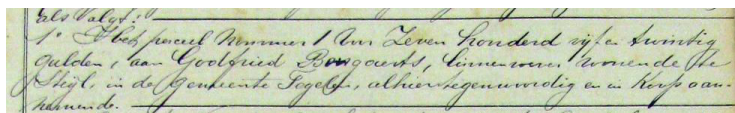 als volgt:
1° Het perceel Nommer 1 voor Zeven honderd vijf en twintig
gulden, aan Godfried Bongaerts, linnenwever wonende te
Steijl, in de Gemeente Tegelen, alhier tegenwoordig en in koop aan-
nemende.